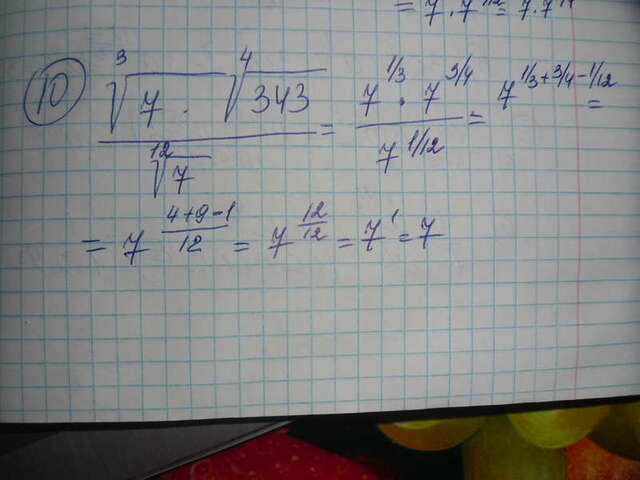 = 7 · 7^{1/2} = 7 · 7
10) \frac{\sqrt[3]{7} · \sqrt[4]{343}}{\sqrt[12]{7}} = \frac{7^{1/3} · 7^{3/4}}{7^{1/12}} = 7^{1/3+3/4-1/12} =
= 7^{\frac{4+9-1}{12}} = 7^{\frac{12}{12}} = 7^1 = 7